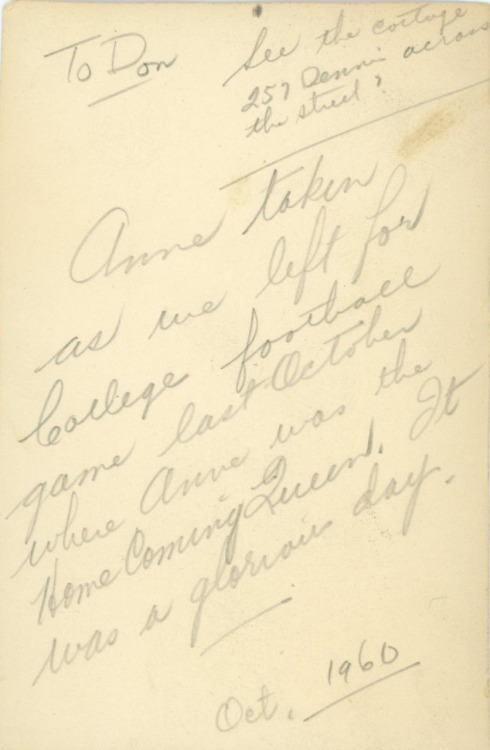 To Don
See the cottage
257 Dennis across
the street?
Anne taken
as we left for
College football
game last October
where Anne was the
Home Coming Queen. It
was a glorious day.
Oct. 1960